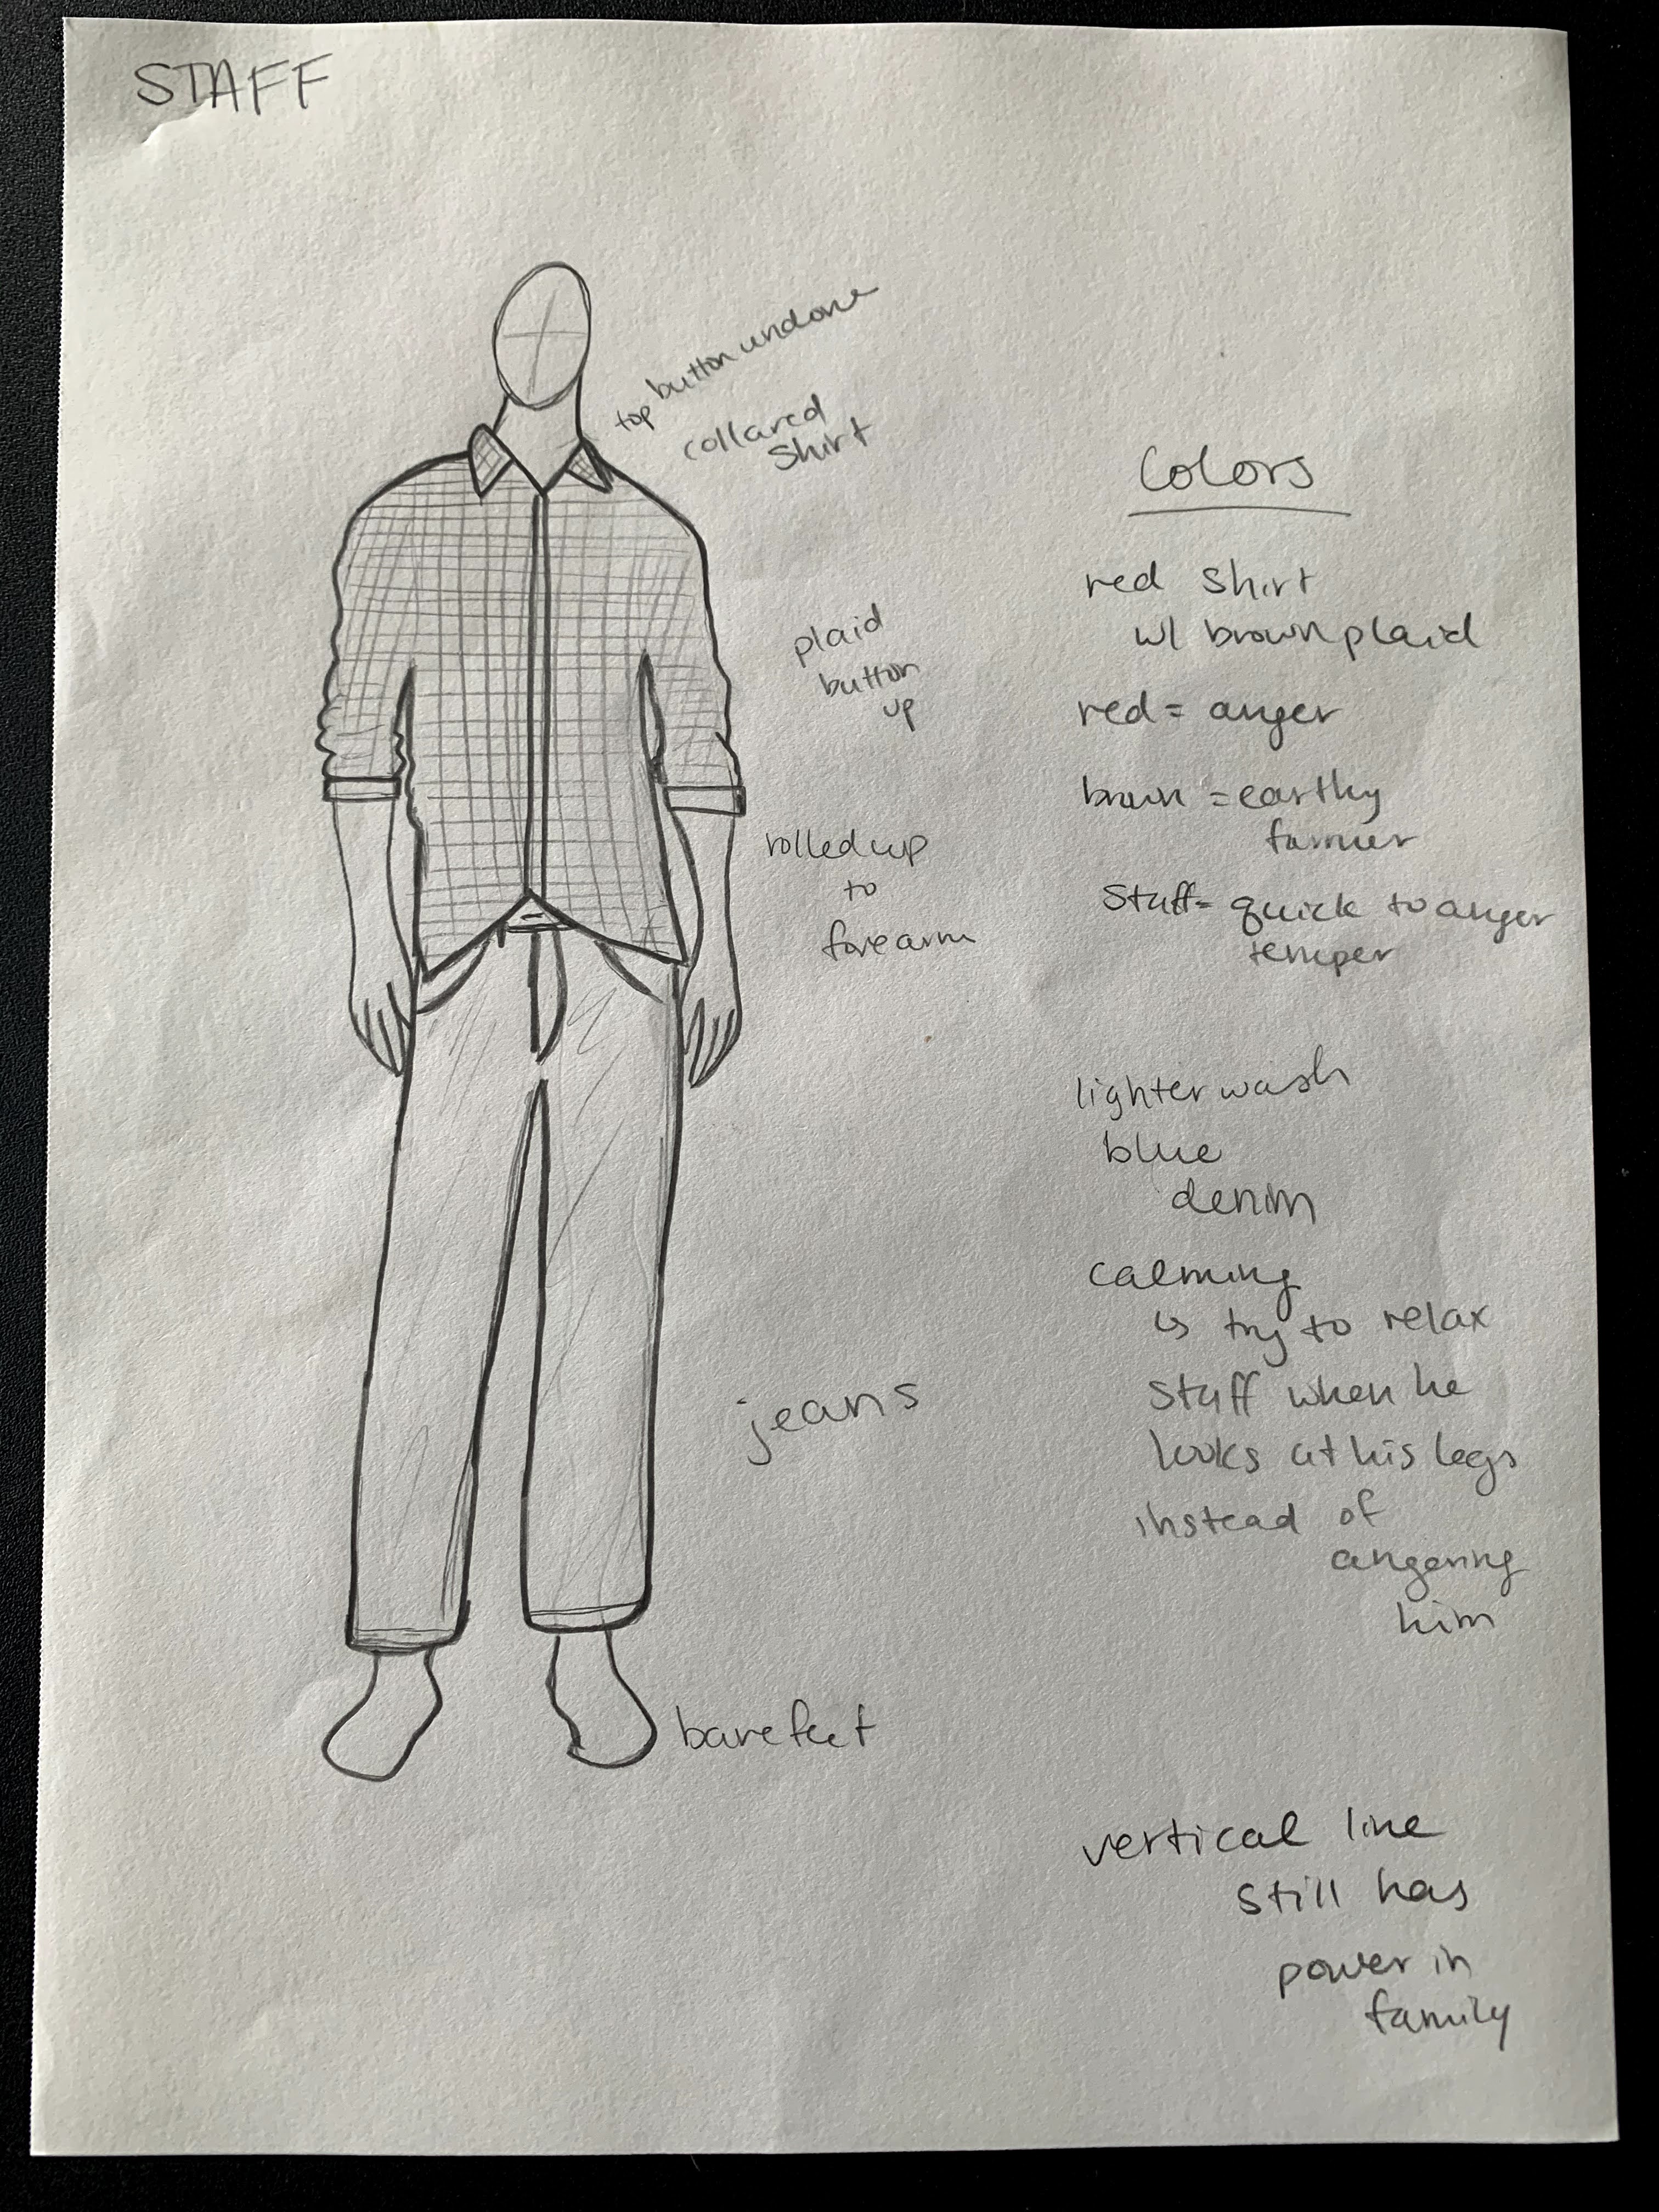 STAFF
top button undone
collared
shirt
plaid
button
up
rolled up
to
forearm
jeans
barefeet
Colors
red shirt
w/ brown plaid
red = anger
brown = earthy
farmer
Staff = quick to anger
temper
lighter wash
blue
denim
calming
↳ try to relax
Staff when he
looks at his legs
instead of
angering
him
vertical line
still has
power in
family